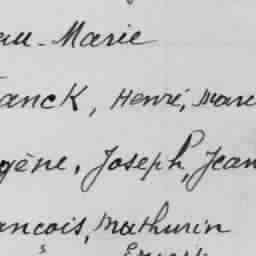 au-Marie
anck, Henri, Marc
gène, Joseph, Jean
ançois, Mathurin